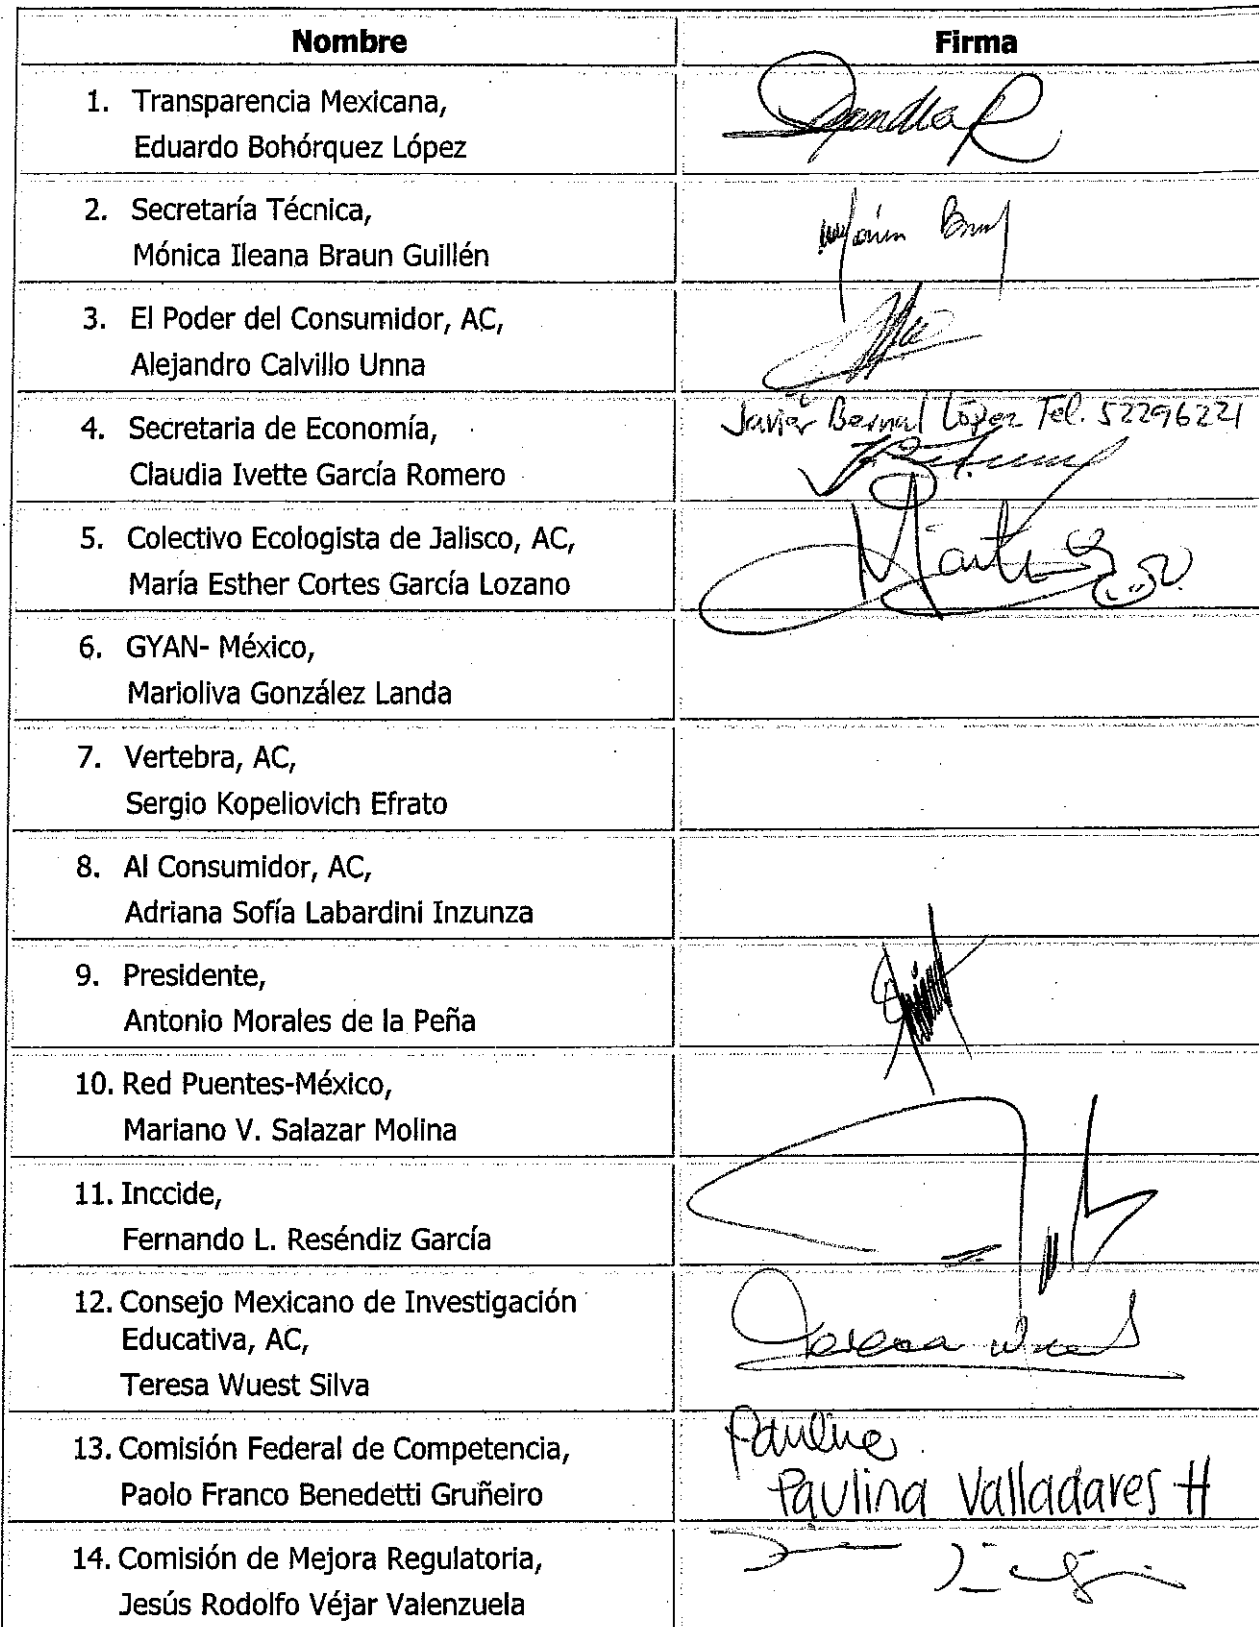 Nombre Firma
1. Transparencia Mexicana,
Eduardo Bohórquez López
2. Secretaría Técnica,
Mónica Ileana Braun Guillén
3. El Poder del Consumidor, AC,
Alejandro Calvillo Unna
Javier Bernal López Tel. 52296221
4. Secretaria de Economía,
Claudia Ivette García Romero
5. Colectivo Ecologista de Jalisco, AC,
María Esther Cortes García Lozano
6. GYAN- México,
Marioliva González Landa
7. Vertebra, AC,
Sergio Kopeliovich Efrato
8. Al Consumidor, AC,
Adriana Sofía Labardini Inzunza
9. Presidente,
Antonio Morales de la Peña
10. Red Puentes-México,
Mariano V. Salazar Molina
11. Inccide,
Fernando L. Reséndiz García
12. Consejo Mexicano de Investigación
Educativa, AC,
Teresa Wuest Silva
13. Comisión Federal de Competencia,
Paolo Franco Benedetti Gruñeiro
Paulina Valladares H
14. Comisión de Mejora Regulatoria,
Jesús Rodolfo Véjar Valenzuela